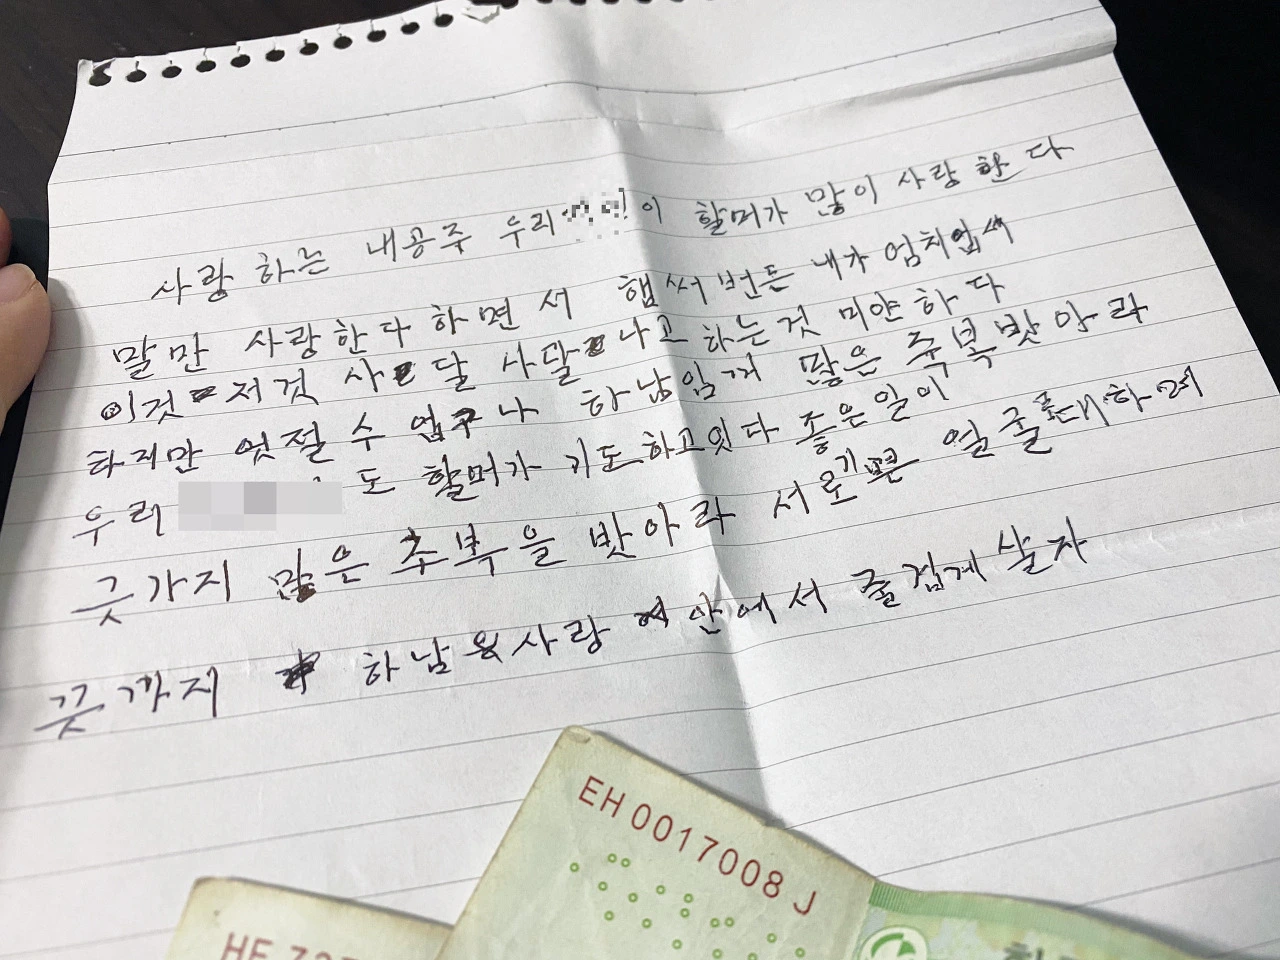 사랑 하는 내공주 우리 이 할머가 많이 사랑 한 다
말만 사랑한다 하면서 햅써 번든 내가 엄치업서
이것 저것 사달 사달 나고 하는것 미얀하다
하지만 엇절수 업구나 하남임꺼 많은 축복밧아라
우리 도 할머가 기도하고잇다 좋은일이
긋가지 많은 추북을 밧아라 서로기쁜 얼굴로대하며
끗까지 하남 사랑 안에서 즐겁게 살자
EH 0017008 J
HF